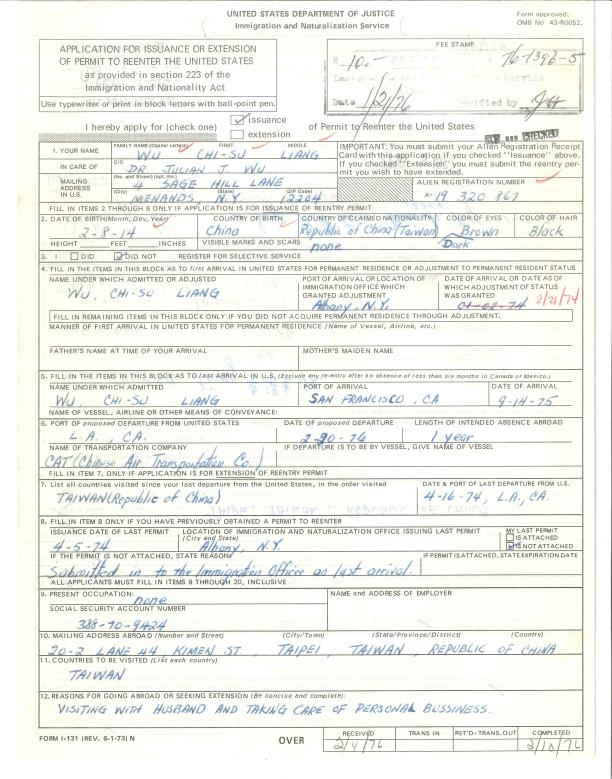 UNITED STATES DEPARTMENT OF JUSTICE
Immigration and Naturalization Service
Form approved.
OMB No 43-R0052.
APPLICATION FOR ISSUANCE OR EXTENSION
OF PERMIT TO REENTER THE UNITED STATES
as provided in section 223 of the
Immigration and Nationality Act
Use typewriter or print in block letters with ball-point pen.
FEE STAMP
$ 10.-
76-1396-5
Date 1/21/76
verified by
I hereby apply for (check one)
issuance
extension
of Permit to Reenter the United States
CHECKED
1. YOUR NAME
FAMILY NAME (Capital Letters) FIRST MIDDLE
WU CHI-SU LIANG
IN CARE OF
C/O
DR JULIAN J. WU
MAILING
ADDRESS
IN U.S.
(No. and Street) (Apt. No.)
4 SAGE HILL LANE
(City) (State) (ZIP Code)
MENANDS, N.Y 12204
IMPORTANT: You must submit your Alien Registration Receipt
Card with this application if you checked "Issuance" above.
If you checked "Extension" you must submit the reentry per-
mit you wish to have extended.
ALIEN REGISTRATION NUMBER
A-19 320 861
FILL IN ITEMS 2 THROUGH 6 ONLY IF APPLICATION IS FOR ISSUANCE OF REENTRY PERMIT.
2. DATE OF BIRTH (Month, Day, Year)
2-8-14
COUNTRY OF BIRTH
China
COUNTRY OF CLAIMED NATIONALITY
Republic of China (Taiwan)
COLOR OF EYES
Brown
Dark
COLOR OF HAIR
Black
HEIGHT FEET INCHES
VISIBLE MARKS AND SCARS
none
3. I DID DID NOT REGISTER FOR SELECTIVE SERVICE
4. FILL IN THE ITEMS IN THIS BLOCK AS TO first ARRIVAL IN UNITED STATES FOR PERMANENT RESIDENCE OR ADJUSTMENT TO PERMANENT RESIDENT STATUS
NAME UNDER WHICH ADMITTED OR ADJUSTED
WU, CHI-SU LIANG
PORT OF ARRIVAL OR LOCATION OF
IMMIGRATION OFFICE WHICH
GRANTED ADJUSTMENT
Albany, N.Y.
DATE OF ARRIVAL OR DATE AS OF
WHICH ADJUSTMENT OF STATUS
WAS GRANTED
01-02-74 2/21/74
FILL IN REMAINING ITEMS IN THIS BLOCK ONLY IF YOU DID NOT ACQUIRE PERMANENT RESIDENCE THROUGH ADJUSTMENT.
MANNER OF FIRST ARRIVAL IN UNITED STATES FOR PERMANENT RESIDENCE (Name of Vessel, Airline, etc.)
FATHER'S NAME AT TIME OF YOUR ARRIVAL
MOTHER'S MAIDEN NAME
5. FILL IN THE ITEMS IN THIS BLOCK AS TO last ARRIVAL IN U.S. (Exclude any re-entry after an absence of less than six months in Canada or Mexico.)
NAME UNDER WHICH ADMITTED
WU, CHI-SU LIANG
PORT OF ARRIVAL
SAN FRANCISCO, CA
DATE OF ARRIVAL
9-14-75
NAME OF VESSEL, AIRLINE OR OTHER MEANS OF CONVEYANCE:
6. PORT OF proposed DEPARTURE FROM UNITED STATES
L.A., CA.
DATE OF proposed DEPARTURE
2-20-76
LENGTH OF INTENDED ABSENCE ABROAD
1 year
NAME OF TRANSPORTATION COMPANY
CAT (Chinese Air Transportation Co.)
IF DEPARTURE IS TO BE BY VESSEL, GIVE NAME OF VESSEL
FILL IN ITEM 7, ONLY IF APPLICATION IS FOR EXTENSION OF REENTRY PERMIT
7. List all countries visited since your last departure from the United States, in the order visited
TAIWAN (Republic of China)
DATE & PORT OF LAST DEPARTURE FROM U.S.
4-16-74, L.A., CA.
8. FILL IN ITEM 8 ONLY IF YOU HAVE PREVIOUSLY OBTAINED A PERMIT TO REENTER
ISSUANCE DATE OF LAST PERMIT
4-5-74
LOCATION OF IMMIGRATION AND NATURALIZATION OFFICE ISSUING LAST PERMIT
(City and State)
Albany, N.Y.
MY LAST PERMIT
IS ATTACHED
IS NOT ATTACHED
IF THE PERMIT IS NOT ATTACHED, STATE REASON
Submitted in to the Immigration Officer on last arrival.
IF PERMIT IS ATTACHED, STATE EXPIRATION DATE
ALL APPLICANTS MUST FILL IN ITEMS 9 THROUGH 20, INCLUSIVE
9. PRESENT OCCUPATION:
none
NAME AND ADDRESS OF EMPLOYER
SOCIAL SECURITY ACCOUNT NUMBER
388-70-9424
10. MAILING ADDRESS ABROAD (Number and Street) (City/Town) (State/Province/District) (Country)
20-2 LANE 44, KIMEN ST, TAIPEI, TAIWAN, REPUBLIC OF CHINA
11. COUNTRIES TO BE VISITED (List each country)
TAIWAN
12. REASONS FOR GOING ABROAD OR SEEKING EXTENSION (Be concise and complete):
VISITING WITH HUSBAND AND TAKING CARE OF PERSONAL BUSSINESS.
FORM I-131 (REV. 6-1-73) N
OVER
RECEIVED
2/4/76
TRANS IN
RET'D-TRANS. OUT
COMPLETED
2/10/76